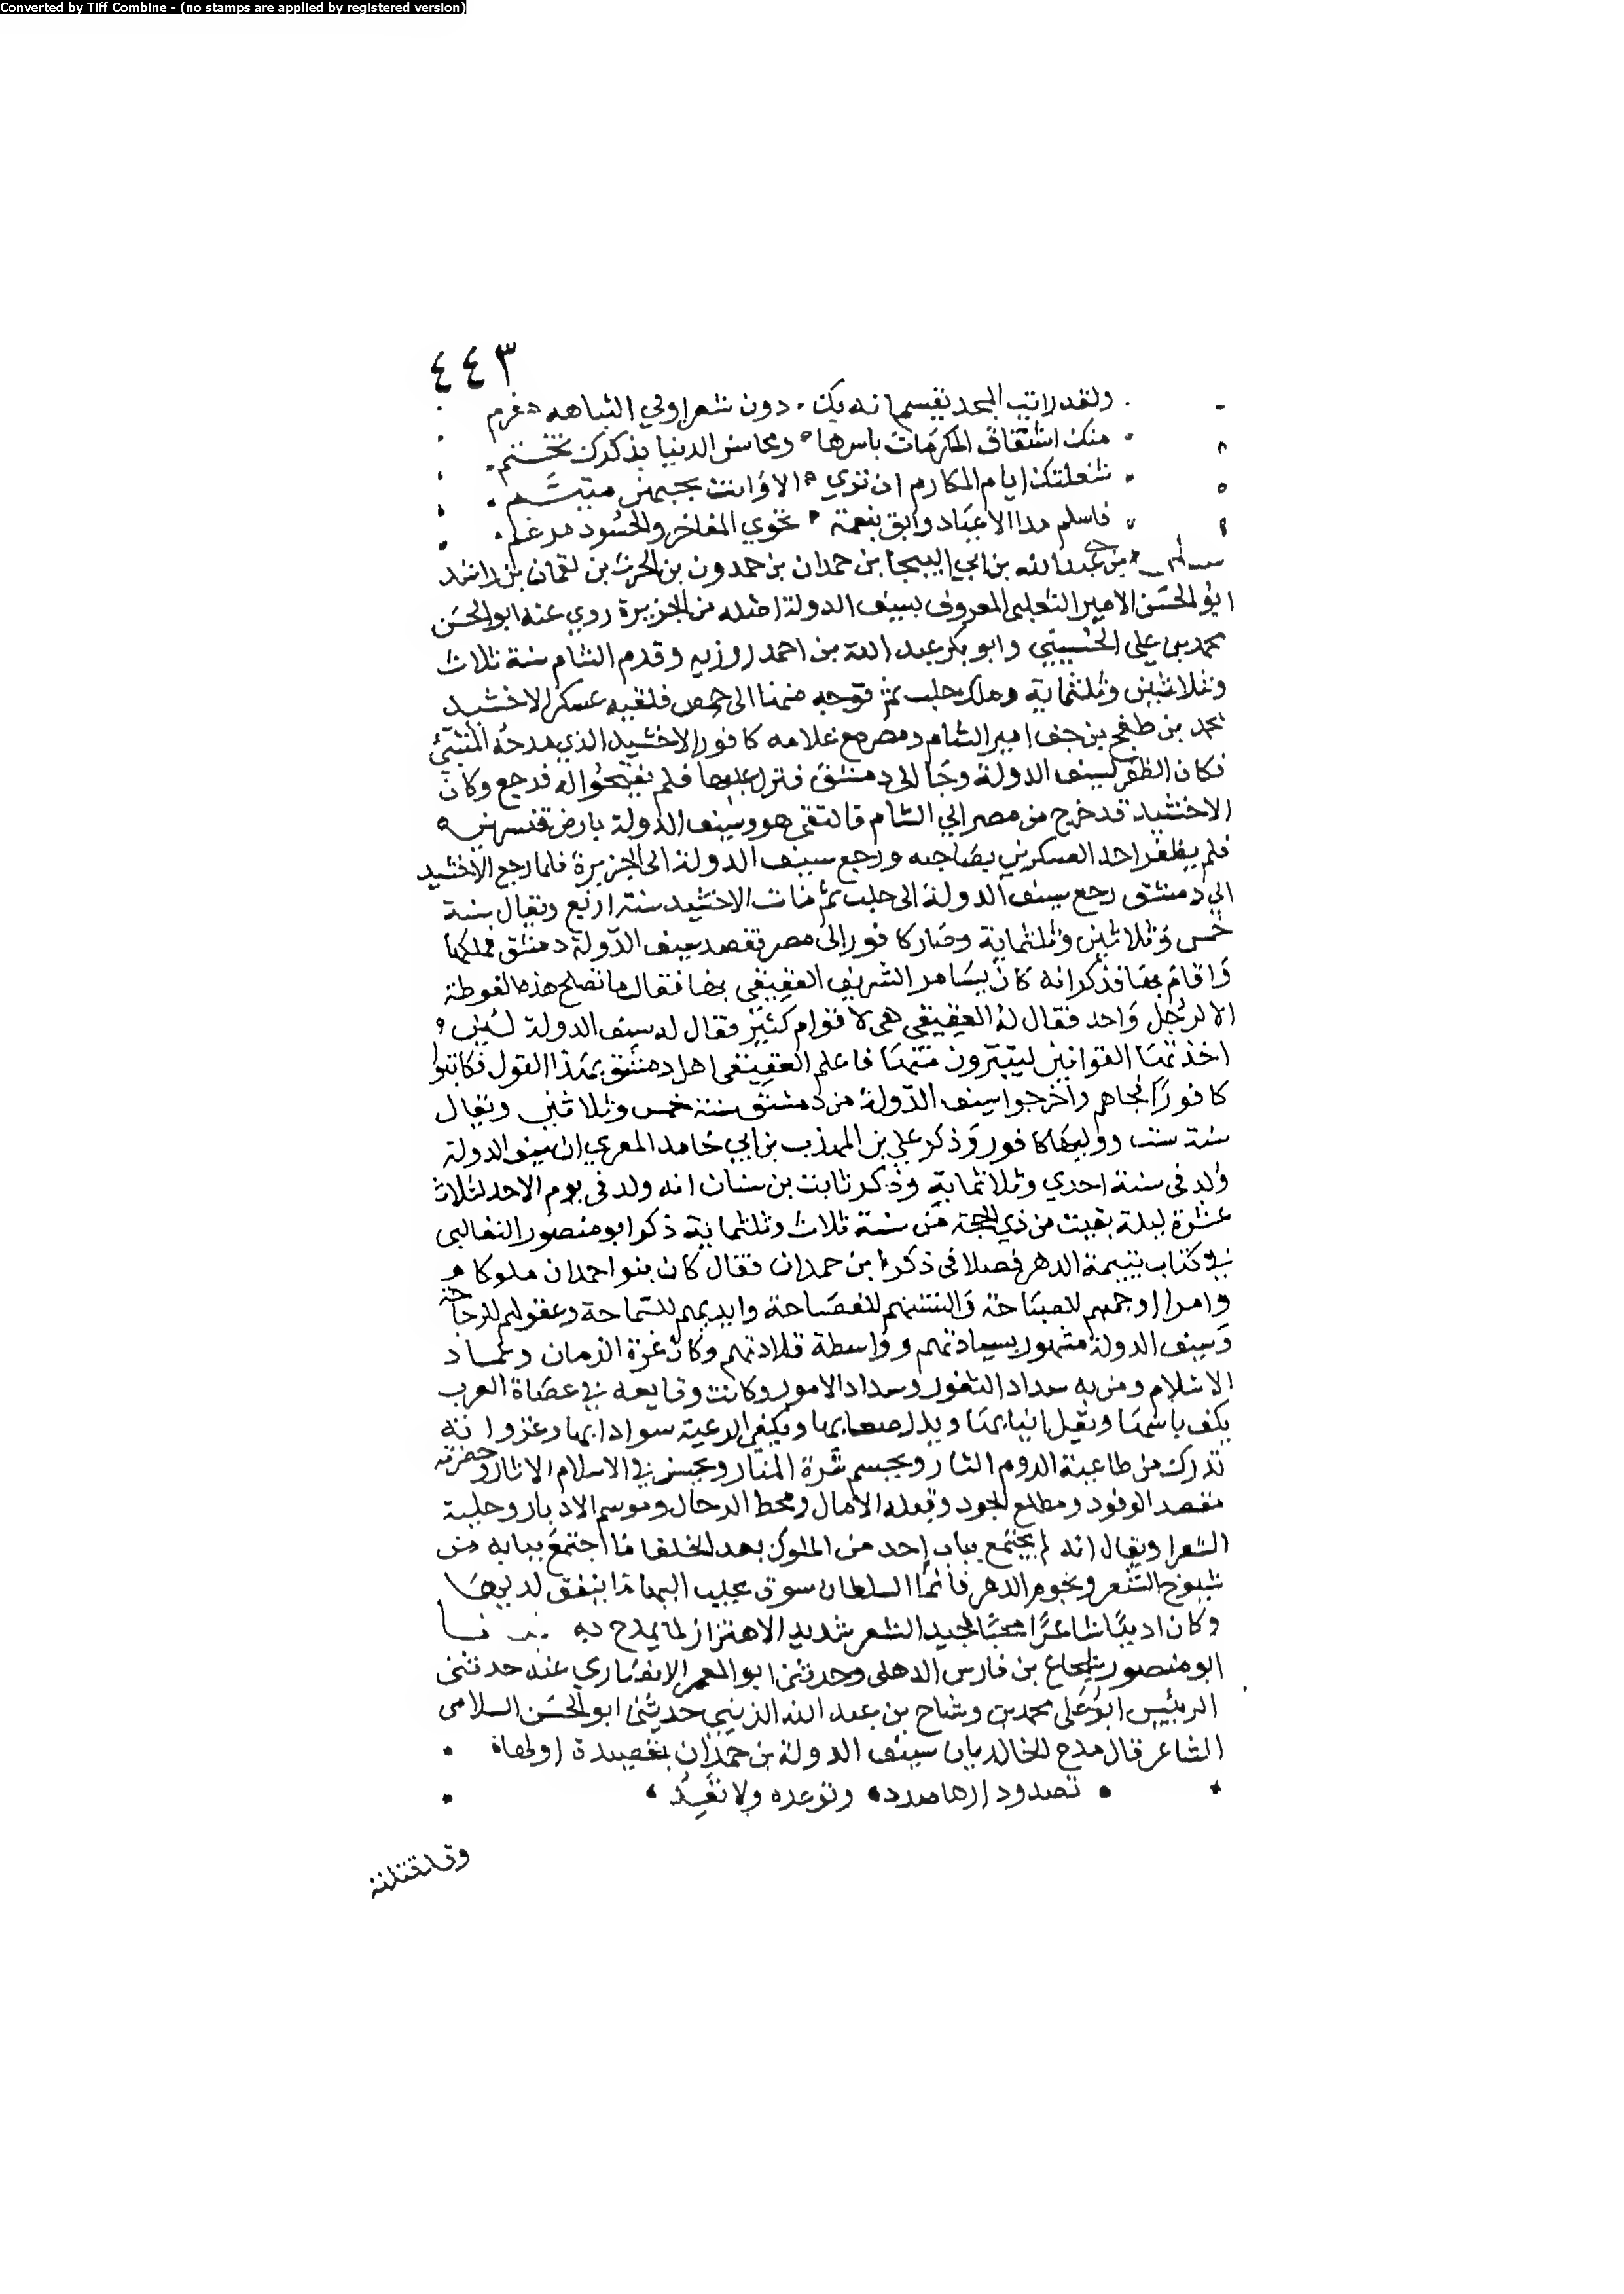 Converted by Tiff Combine - (no stamps are applied by registered version)
٤٤٣
ولقد راتب المجد يقسم انه بك دون شعراولي النباهه مغرم
منك اشتقاق المكرمات باسرها ومحاسن الدنيا بذكرك تختتم
شغلتك ايام المكارم ان تري الا وانت بجبهن متيم
فاسلم مدا الاعياد وابق بنعمة تحوي المفاخر والحسود مرغم
علي بن عبد الله بن ابي الهيجا بن حمدان بن حمدون بن الحرث بن لقمان بن راشد
ابو الحسن الامير التغلبي المعروف بسيف الدولة اصله من الجزيرة روي عنه ابو الحسن
محمد بن علي الحسيني وابو بكر عبد الله بن احمد روزبه وقدم الشام سنة ثلاث
وثلاثين وثلثماية وملك حلب ثم توجه منها الى حمص فلقيه عسكر الاخشيد
محمد بن طغج بن جف امير الشام ومصر مع غلامه كافور الاخشيد الذي مدحه المتنبي
فكان الظفر لسيف الدولة وجا الى دمشق فنزل عليها فلم يفتحوا له فرجع وكان
الاخشيد قد خرج من مصر الي الشام فالتقى هو وسيف الدولة بارض قنسرين
فلم يظفر احد العسكرين بصاحبه ورجع سيف الدولة الى الجزيرة فلما رجع الاخشيد
الي دمشق رجع سيف الدولة الى حلب ثم مات الاخشيد سنة اربع ويقال سنة
خمس وثلاثين وثلثماية وصار كافور الى مصر فقصد سيف الدولة دمشق فملكها
واقام بها فذكر انه كان يساهر الشريف العقيقي بها فقال ما تصلح هذه الغوطة
الا لرجل واحد فقال له العقيقي هى لاقوام كثير فقال له سيف الدولة لئن
اخذتها القوانين ليتبرون منها فاعلم العقيقي اهل دمشق بهذا القول فكاتبوا
كافورا فجاهم واخرجوا سيف الدولة من دمشق سنة خمس وثلاثين ويقال
سنة ست ووليها كافور وذكر علي بن المهذب بن ابي حامد المعري ان سيف الدولة
ولد في سنة احدي وثلاثماية وذكر ثابت بن سنان انه ولد في يوم الاحد لثلاث
عشرة ليلة بقيت من ذي الحجة من سنة ثلاث وثلثماية ذكر ابو منصور الثعالبي
في كتاب يتيمة الدهر فصلا في ذكر ابن حمدان فقال كان بنو احمدان ملوكا
وامرا اوجههم للصباحة والسنتهم للفصاحة وايديهم للسماحة وعقولهم للرجاحة
وسيف الدولة مشهور بسيادتهم وواسطة قلادتهم وكان غرة الزمان وعماد
الاسلام ومن به سداد الثغور وسداد الامور وكانت وقايعه في عصاة العرب
يكف باسها وتفل انيابها ويذل صعابها ويكفي الرعية سوادابها وغزواته
تدرك من طاغية الروم الثار ويحسم شرة المنار ويحسن في الاسلام الاثار وحضرته
مقصد الوفود ومطلع الجود وقبلة الامال ومحط الرحال وموسم الادبار وحلبة
الشعرا ويقال انه لم يجتمع بباب احد من الملوك بعد الخلفا ما اجتمع ببابه من
شيوخ الشعر ونجوم الدهر فانما السلطان سوق يجلب اليها ما ينفق لديها
وكان اديبا شاعرا محبا لجيد الشعر شديد الاهتزاز لما يمدح به
ابو منصور شجاع بن فارس الدهلى وحدثني ابو المعمر الانصاري عنه حدثني
الرئيس ابو على محمد بن وشاح بن عبد الله الزينبي حدثني ابو الحسن السلامى
الشاعر قال مدح الخالديان سيف الدولة بن حمدان بقصيدة اولها
تصد ودارها صدد وتوعده ولا تعد